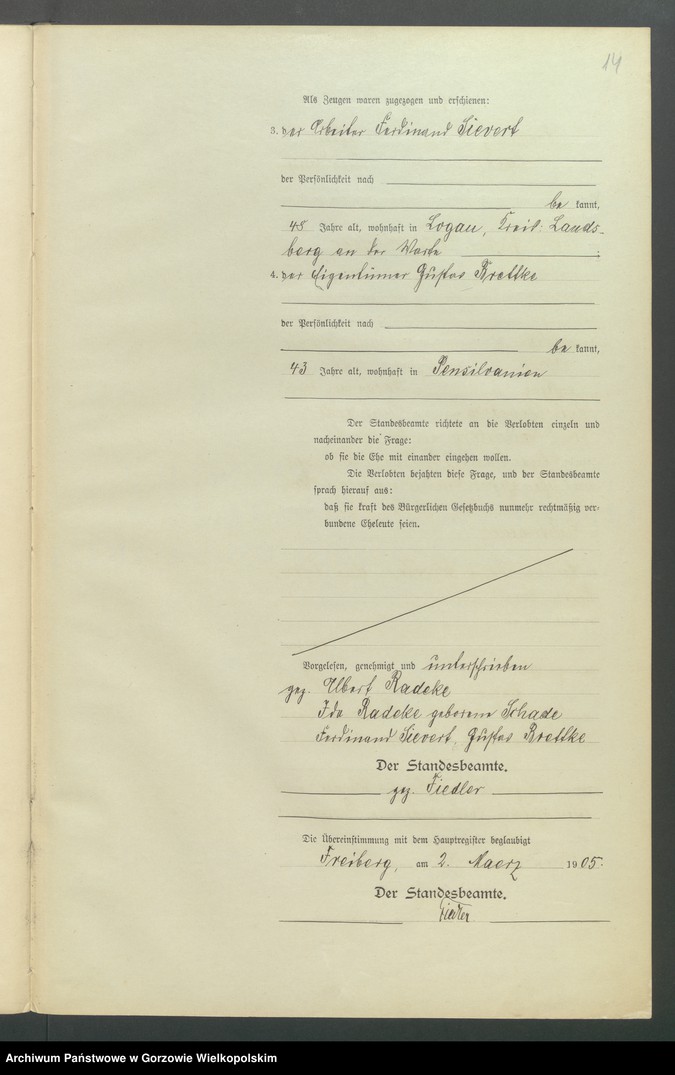 14
Als Zeugen waren zugezogen und erschienen:
3. der Arbeiter Ferdinand Sievert
der Persönlichkeit nach
be kannt,
48 Jahre alt, wohnhaft in Logau, Kreis: Lands-
berg an der Warte ;
4. der Eigentümer Gustav Brettke
der Persönlichkeit nach
be kannt,
43 Jahre alt, wohnhaft in Pensilvanien
Der Standesbeamte richtete an die Verlobten einzeln und
nacheinander die Frage:
ob sie die Ehe mit einander eingehen wollen.
Die Verlobten bejahten diese Frage, und der Standesbeamte
sprach hierauf aus:
daß sie kraft des Bürgerlichen Gesetzbuchs nunmehr rechtmäßig ver-
bundene Eheleute seien.
Vorgelesen, genehmigt und unterschrieben
gez. Albert Radeke
Ida Radeke geborene Schade
Ferdinand Sievert, Gustav Brettke
Der Standesbeamte.
gez. Fiedler
Die Übereinstimmung mit dem Hauptregister beglaubigt
Freiberg, am 2. Maerz 1905.
Der Standesbeamte.
Fiedler
Archiwum Państwowe w Gorzowie Wielkopolskim